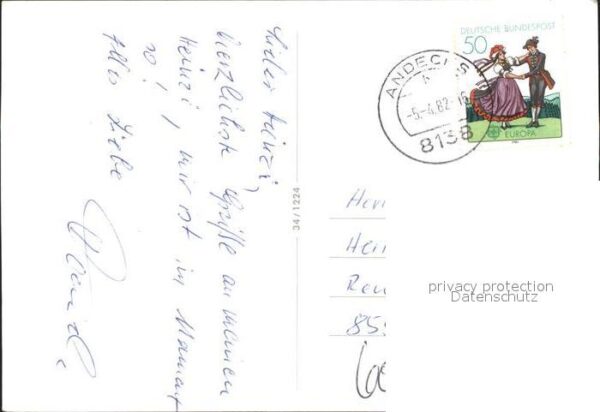 Lieber Heinzi,
herzlichste Grüße an meinen
Heinzi, mir ist im Moment
so!
Alles Liebe
34/1224
DEUTSCHE BUNDESPOST
50
EUROPA
ANDECHS
-5.-4.82-18
8138
Herr
Hein
Ren
85
privacy protection
Datenschutz